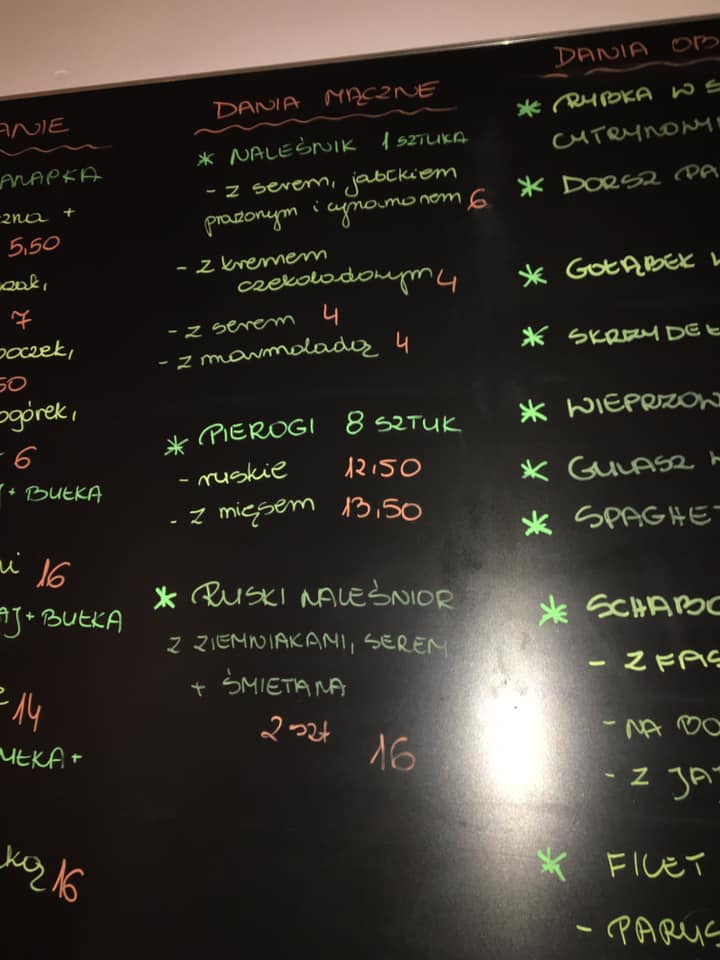 ANIE
ANAPKA
zna +
5,50
zak,
7
boczek,
50
ogórek,
6
+ BUŁKA
i 16
AJ + BUŁKA
14
UŁKA +
ką 16
DANIA MĄCZNE
* NALEŚNIK 1 SZTUKA
- z serem, jabłkiem
prażonym i cynamonem 6
- z kremem
czekoladowym 4
- z serem 4
- z marmoladą 4
* PIEROGI 8 SZTUK
- ruskie 12,50
- z mięsem 13,50
* RUSKI NALEŚNIOR
Z ZIEMNIAKAMI, SEREM
+ ŚMIETANA
2 szt 16
DANIA OB
* RYBKA W S
CYTRYNOWY
* DORSZ PA
* GOŁĄBEK
* SKRZYDEŁ
* WIEPRZOW
* GULASZ
* SPAGHET
* SCHABO
- Z FAS
- NA BO
- Z JA
* FILET
- PARYS